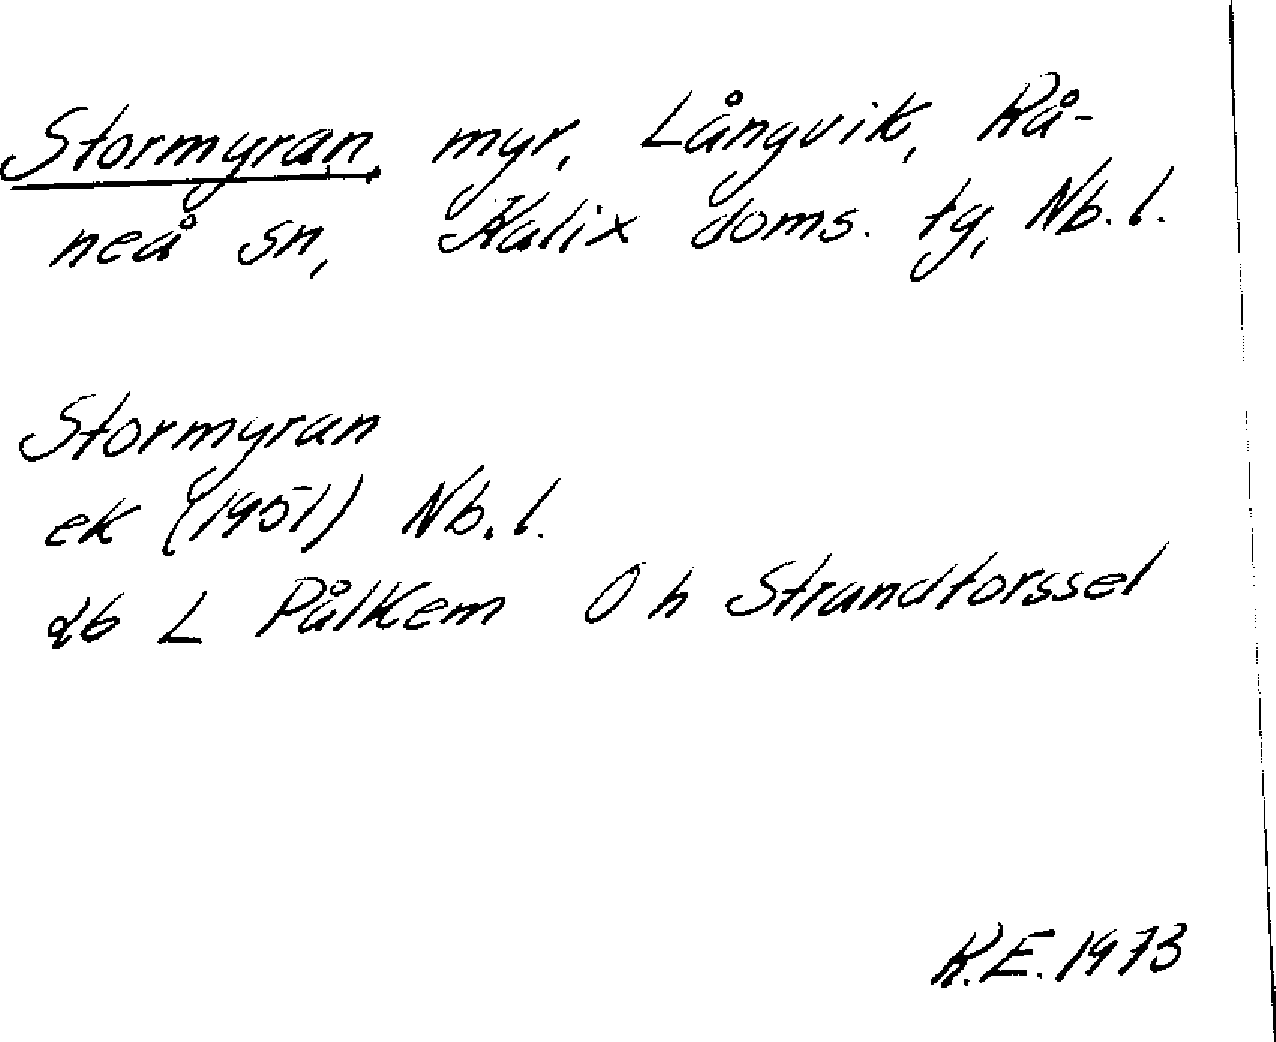 Stormyran, myr, Långvik, Rå-
neå sn, Kalix doms. tg, Nb. l.
Stormyran
ek (1951) Nb. l.
db L Pålkem O h Strandforssel
K.E. 1973